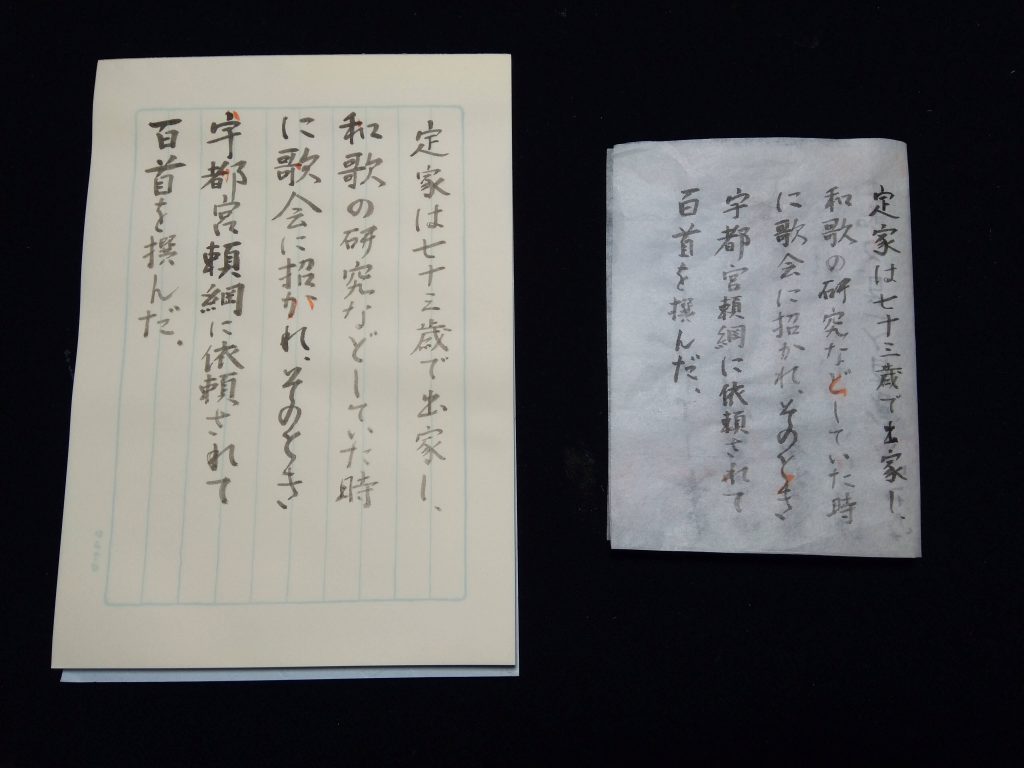 定家は七十三歳で出家し、
和歌の研究などしていた時
に歌会に招かれ、そのとき
宇都宮頼綱に依頼されて
百首を撰んだ。
定家は七十三歳で出家し、
和歌の研究などしていた時
に歌会に招かれ、そのとき
宇都宮頼綱に依頼されて
百首を撰んだ、